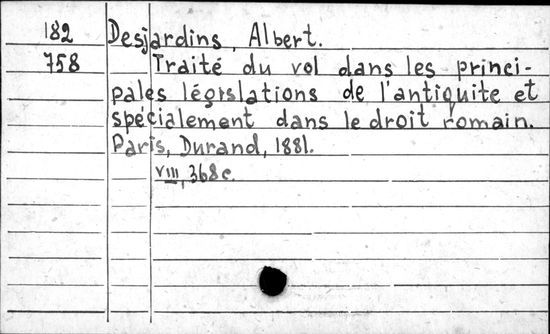 182 Desjardins, Albert.
758 Traité du vol dans les princi-
pales législations de l'antiquite et
spécialement dans le droit romain.
Paris, Durand, 1881.
VIII, 368c.